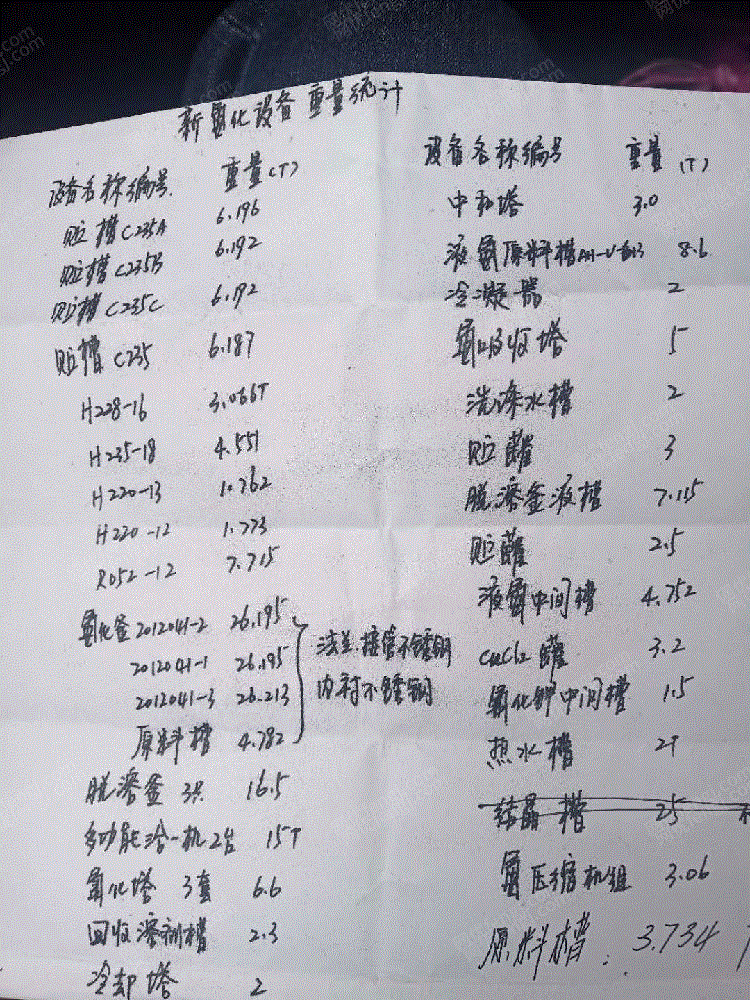 新氯化设备重量统计
设备名称编号 重量(T)
贮槽C235A 6.196
贮槽C235B 6.192
贮槽C235C 6.192
贮槽C235 6.187
H228-16 3.066T
H235-18 4.551
H220-13 1.762
H220-12 1.773
R052-12 7.715
氯化釜2012041-2 26.195
2012041-1 26.195
2012041-3 26.213
原料槽 4.782
法兰.接管不锈钢
内衬不锈钢
脱溶釜 3只 16.5
多功能冷一机2台 15T
氯化塔 3套 6.6
回收溶剂槽 2.3
冷却塔 2
设备名称编号 重量(T)
中和塔 3.0
液氯原料槽 8.6
冷凝器 2
氯吸收塔 5
洗涤水槽 2
贮罐 3
脱溶釜液槽 7.115
贮罐 2.5
液氯中间槽 4.752
CuCl2罐 3.2
氯化钾中间槽 1.5
热水槽 2T
结晶槽 25
氯压缩机组 3.06
原料槽: 3.734